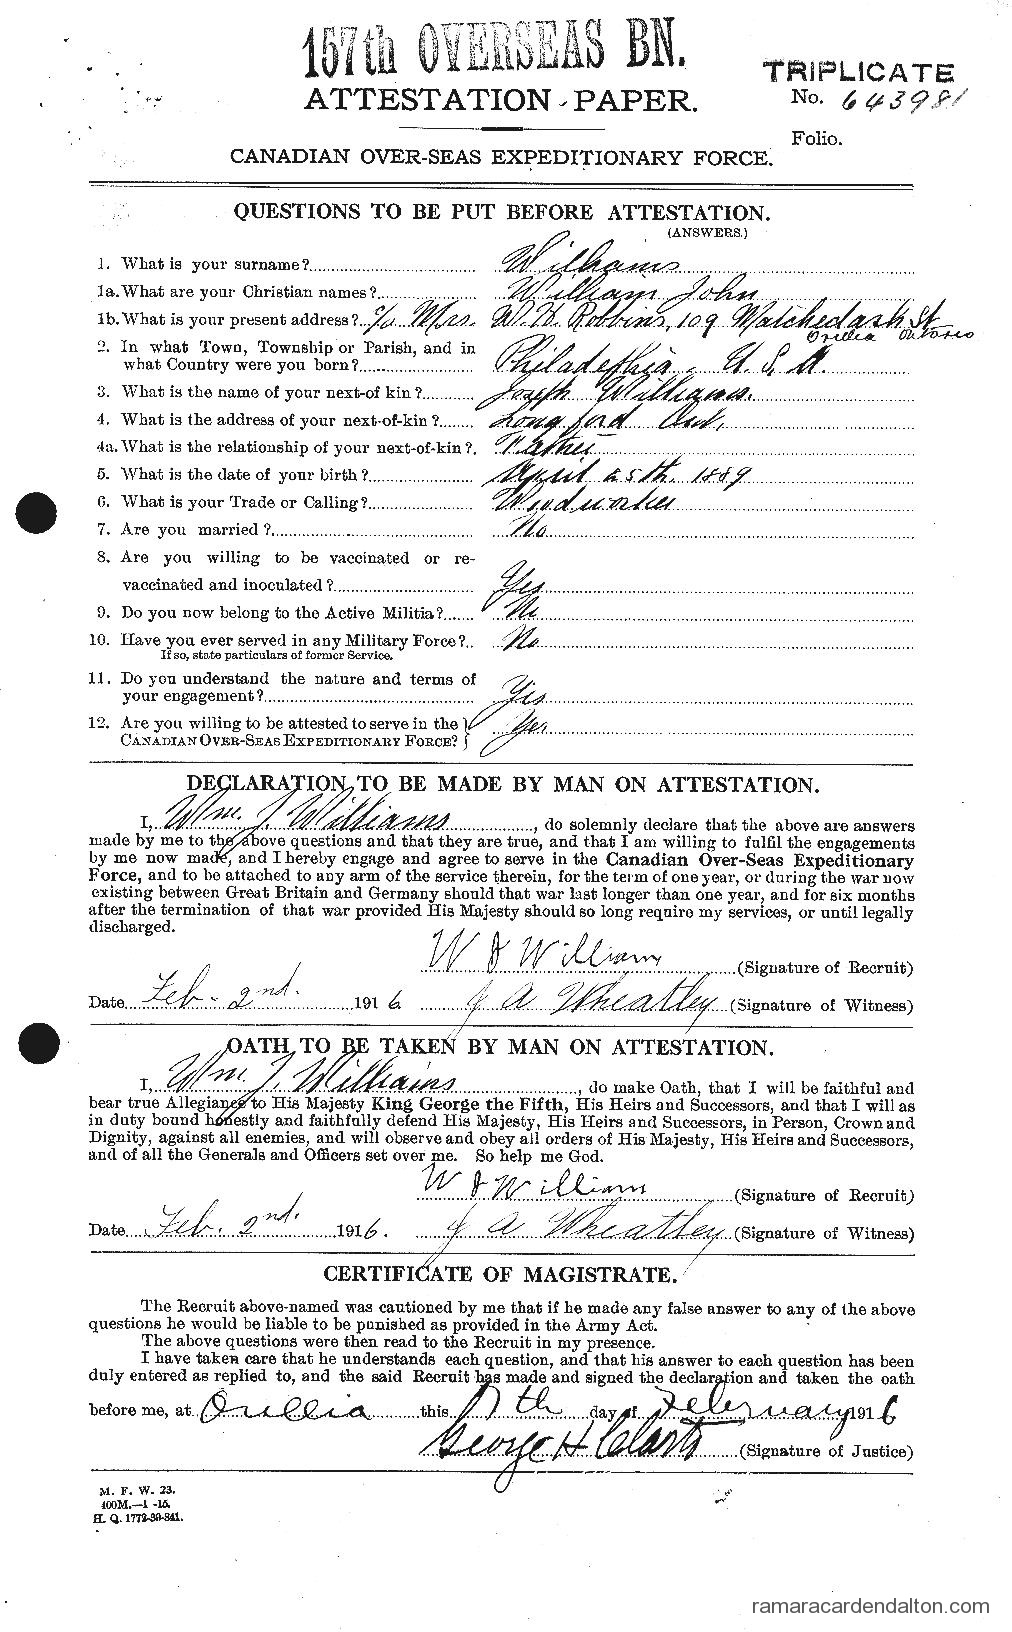 157th OVERSEAS BN.
TRIPLICATE
ATTESTATION PAPER.
No. 643981
Folio.
CANADIAN OVER-SEAS EXPEDITIONARY FORCE.
QUESTIONS TO BE PUT BEFORE ATTESTATION.
(ANSWERS.)
1. What is your surname? Williams
1a. What are your Christian names? William John
1b. What is your present address? c/o Mrs. W. H. Robbins, 109 Matchedash St
Orillia Ontario
2. In what Town, Township or Parish, and in
what Country were you born? Philadelphia U. S. A.
3. What is the name of your next-of kin? Joseph Williams.
4. What is the address of your next-of-kin? Longford Ont.
4a. What is the relationship of your next-of-kin? Father
5. What is the date of your birth? April 25th 1889
6. What is your Trade or Calling? Woodworker
7. Are you married? No
8. Are you willing to be vaccinated or re-
vaccinated and inoculated? Yes
9. Do you now belong to the Active Militia? No
10. Have you ever served in any Military Force? No
If so, state particulars of former Service.
11. Do you understand the nature and terms of
your engagement? Yes
12. Are you willing to be attested to serve in the
CANADIAN OVER-SEAS EXPEDITIONARY FORCE? Yes
DECLARATION TO BE MADE BY MAN ON ATTESTATION.
I, Wm. J. Williams, do solemnly declare that the above are answers
made by me to the above questions and that they are true, and that I am willing to fulfil the engagements
by me now made, and I hereby engage and agree to serve in the Canadian Over-Seas Expeditionary
Force, and to be attached to any arm of the service therein, for the term of one year, or during the war now
existing between Great Britain and Germany should that war last longer than one year, and for six months
after the termination of that war provided His Majesty should so long require my services, or until legally
discharged.
W J William (Signature of Recruit)
Date Feb. 2nd. 1916 J A Wheatley (Signature of Witness)
OATH TO BE TAKEN BY MAN ON ATTESTATION.
I, Wm. J. Williams, do make Oath, that I will be faithful and
bear true Allegiance to His Majesty King George the Fifth, His Heirs and Successors, and that I will as
in duty bound honestly and faithfully defend His Majesty, His Heirs and Successors, in Person, Crown and
Dignity, against all enemies, and will observe and obey all orders of His Majesty, His Heirs and Successors,
and of all the Generals and Officers set over me. So help me God.
W J William (Signature of Recruit)
Date Feb. 2nd. 1916. J A Wheatley (Signature of Witness)
CERTIFICATE OF MAGISTRATE.
The Recruit above-named was cautioned by me that if he made any false answer to any of the above
questions he would be liable to be punished as provided in the Army Act.
The above questions were then read to the Recruit in my presence.
I have taken care that he understands each question, and that his answer to each question has been
duly entered as replied to, and the said Recruit has made and signed the declaration and taken the oath
before me, at Orillia this 17th day of February 1916
George H Clark (Signature of Justice)
M. F. W. 23.
400M.—1-15.
H. Q. 1772-39-841.
ramaracardendalton.com